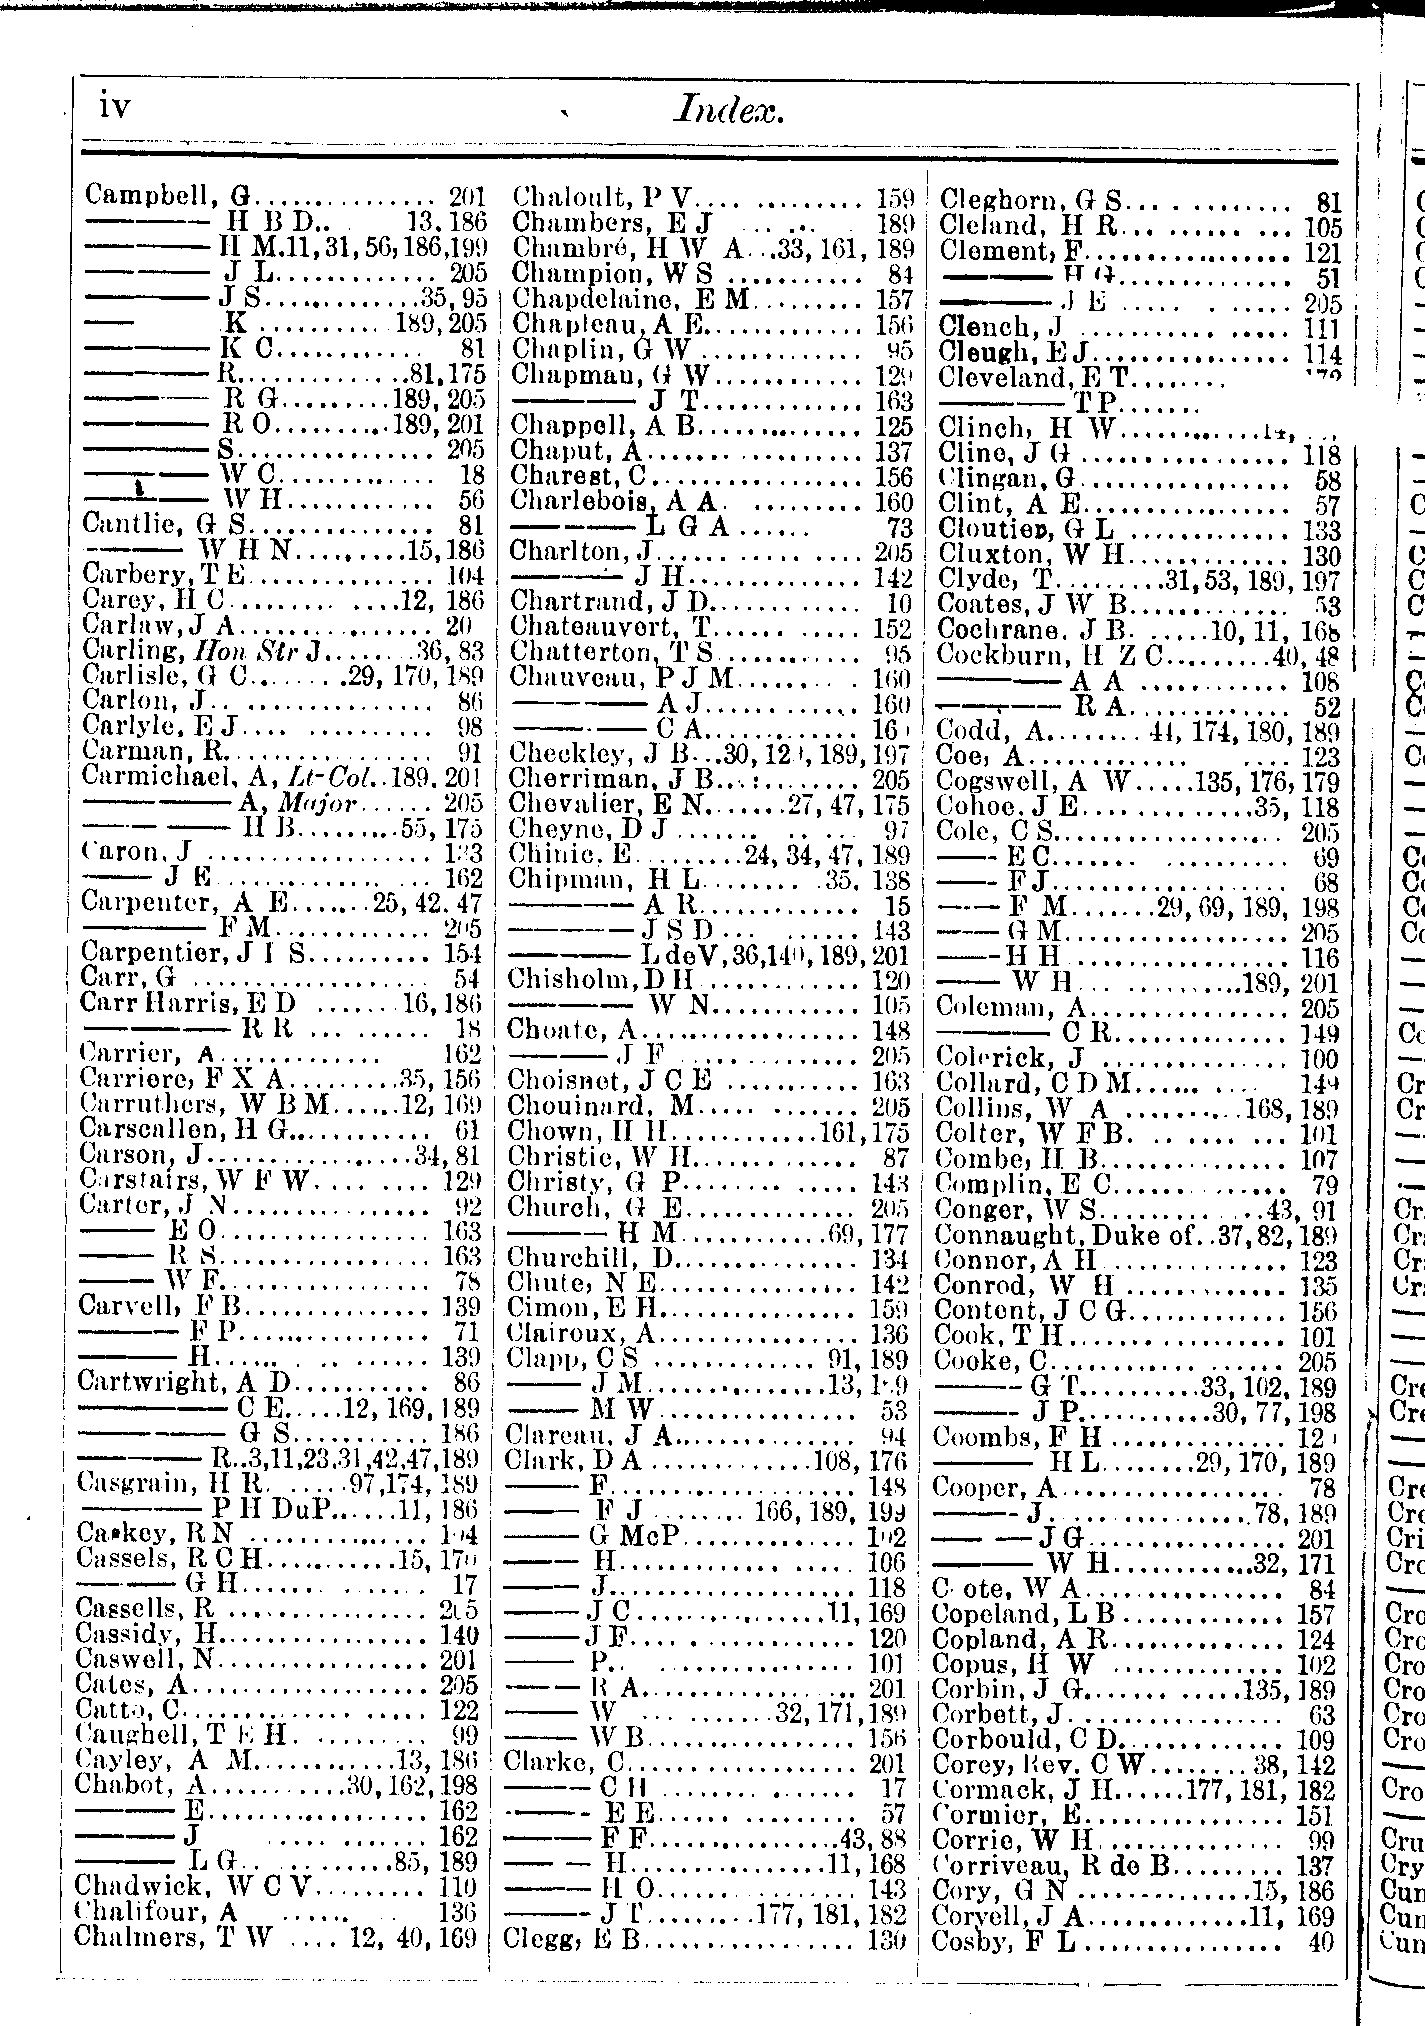 iv
Index.
Campbell, G............... 201
——— H B D.. 13, 186
——— H M.11, 31, 56, 186, 199
——— J L............... 205
——— J S...............35, 95
—— K .......... 189, 205
——— K C............ 81
——— R..............81, 175
——— R G.........189, 205
——— R O..........189, 201
——— S................. 205
——— W C............ 18
——— W H............ 56
Cantlie, G S............... 81
——— W H N.........15, 186
Carbery, T E............... 104
Carey, H C............. 12, 186
Carlaw, J A................. 20
Carling, Hon Str J........36, 83
Carlisle, G C........29, 170, 189
Carlon, J.................. 86
Carlyle, E J............... 98
Carman, R................. 91
Carmichael, A, Lt-Col..189, 201
———— A, Major...... 205
———— H B.........55, 175
Caron, J .................. 133
—— J E.................. 162
Carpenter, A E.......25, 42, 47
——— F M............. 205
Carpentier, J I S.......... 154
Carr, G ................... 54
Carr Harris, E D .......16, 186
———— R R ......... 18
Carrier, A............. 162
Carriere, F X A.........35, 156
Carruthers, W B M......12, 169
Carscallen, H G............ 61
Carson, J..................34, 81
Carstairs, W F W......... 129
Carter, J N................ 92
—— E O................. 163
—— R S................. 163
—— W F................. 78
Carvell, F B............... 139
——— F P............... 71
——— H................ 139
Cartwright, A D........... 86
———— C E.....12, 169, 189
———— G S........... 186
———— R..3,11,23,31,42,47,189
Casgrain, H R.......97, 174, 189
———— P H DuP......11, 186
Caskey, R N .............. 104
Cassels, R C H...........15, 170
——— G H............. 17
Cassells, R ................ 205
Cassidy, H................. 140
Caswell, N................. 201
Cates, A................... 205
Catto, C................... 122
Caughell, T E H. ......... 99
Cayley, A M............13, 186
Chabot, A...........30, 162, 198
——— E.................. 162
——— J ............ 162
——— L G.............85, 189
Chadwick, W C V......... 110
Chalifour, A ...... 136
Chalmers, T W .... 12, 40, 169
Chaloult, P V............. 159
Chambers, E J ...... 189
Chambré, H W A...33, 161, 189
Champion, W S ........... 84
Chapdelaine, E M......... 157
Chapleau, A E............. 156
Chaplin, G W ............. 95
Chapman, G W............ 129
——— J T............. 163
Chappell, A B............. 125
Chaput, A................. 137
Charest, C................. 156
Charlebois, A A. ......... 160
——— L G A...... 73
Charlton, J................ 205
——— J H.............. 142
Chartrand, J D............ 10
Chateauvert, T............ 152
Chatterton, T S............ 95
Chauveau, P J M.......... 160
———— A J............ 160
———— C A............
Checkley, J B...30, 129, 189, 197
Cherriman, J B............ 205
Chevalier, E N.......27, 47, 175
Cheyne, D J ............ 97
Chinic, E.........24, 34, 47, 189
Chipman, H L......... 35, 138
——— A R............. 15
——— J S D... ...... 143
——— L deV, 36, 140, 189, 201
Chisholm, D H ............ 120
——— W N........... 105
Choate, A................. 148
——— J F ............... 205
Choisnet, J C E ........... 163
Chouinard, M............. 205
Chown, H H............161, 175
Christie, W H............. 87
Christy, G P.............. 143
Church, G E.............. 205
——— H M............69, 177
Churchill, D............... 134
Chute, N E................ 142
Cimon, E H................ 159
Clairoux, A................ 136
Clapp, C S ............. 91, 189
—— J M...............13, 189
—— M W................ 53
Clareau, J A............... 94
Clark, D A.............108, 176
—— F.................... 148
—— F J ........ 166, 189, 199
—— G McP.............. 102
—— H.................... 106
—— J.................... 118
—— J C................11, 169
—— J F.................. 120
—— P.. ............... 101
—— R A................. 201
—— W ...........32, 171, 189
—— W B................. 156
Clarke, C.................. 201
—— C H ............... 17
—— E E................. 57
—— F F................43, 88
—— H.................11, 168
—— H O................ 143
—— J T.........177, 181, 182
Clegg, E B................. 130
Cleghorn, G S............. 81
Cleland, H R.............. 105
Clement, F................ 121
——— H G.............. 51
——— J E ............ 205
Clench, J ................ 111
Cleugh, E J................ 114
Cleveland, E T........
——— T P.......
Clinch, H W............14,
Cline, J G ................. 118
Clingan, G................. 58
Clint, A E................. 57
Cloutier, G L ............. 133
Cluxton, W H............. 130
Clyde, T.........31, 53, 189, 197
Coates, J W B............. 53
Cochrane, J B. .....10, 11, 168
Cockburn, H Z C.........40, 48
——— A A ............ 108
——— R A............. 52
Codd, A........ 44, 174, 180, 189
Coe, A............. .... 123
Cogswell, A W.....135, 176, 179
Cohoe, J E..............35, 118
Cole, C S................... 205
—— E C................. 69
—— F J................... 68
—— F M.......29, 69, 189, 198
—— G M.................. 205
—— H H ................. 116
—— W H...............189, 201
Coleman, A................ 205
——— C R.............. 149
Colerick, J ................ 100
Collard, C D M...... .... 149
Collins, W A ..........168, 189
Colter, W F B. .......... 101
Combe, H B............... 107
Complin, E C.............. 79
Conger, W S.............43, 91
Connaught, Duke of..37, 82, 189
Connor, A H .............. 123
Conrod, W H ............. 135
Content, J C G............ 156
Cook, T H................. 101
Cooke, C.................. 205
——— G T..........33, 102, 189
——— J P...........30, 77, 198
Coombs, F H ..............
——— H L........29, 170, 189
Cooper, A................. 78
——— J................78, 189
——— J G............... 201
——— W H...........32, 171
Coote, W A............... 84
Copeland, L B............. 157
Copland, A R.............. 124
Copus, H W .............. 102
Corbin, J G............135, 189
Corbett, J................. 63
Corbould, C D............. 109
Corey, Rev. C W........ 38, 142
Cormack, J H......177, 181, 182
Cormier, E................ 151
Corrie, W H............... 99
Corriveau, R de B......... 137
Cory, G N ...............15, 186
Coryell, J A.............11, 169
Cosby, F L ................ 40